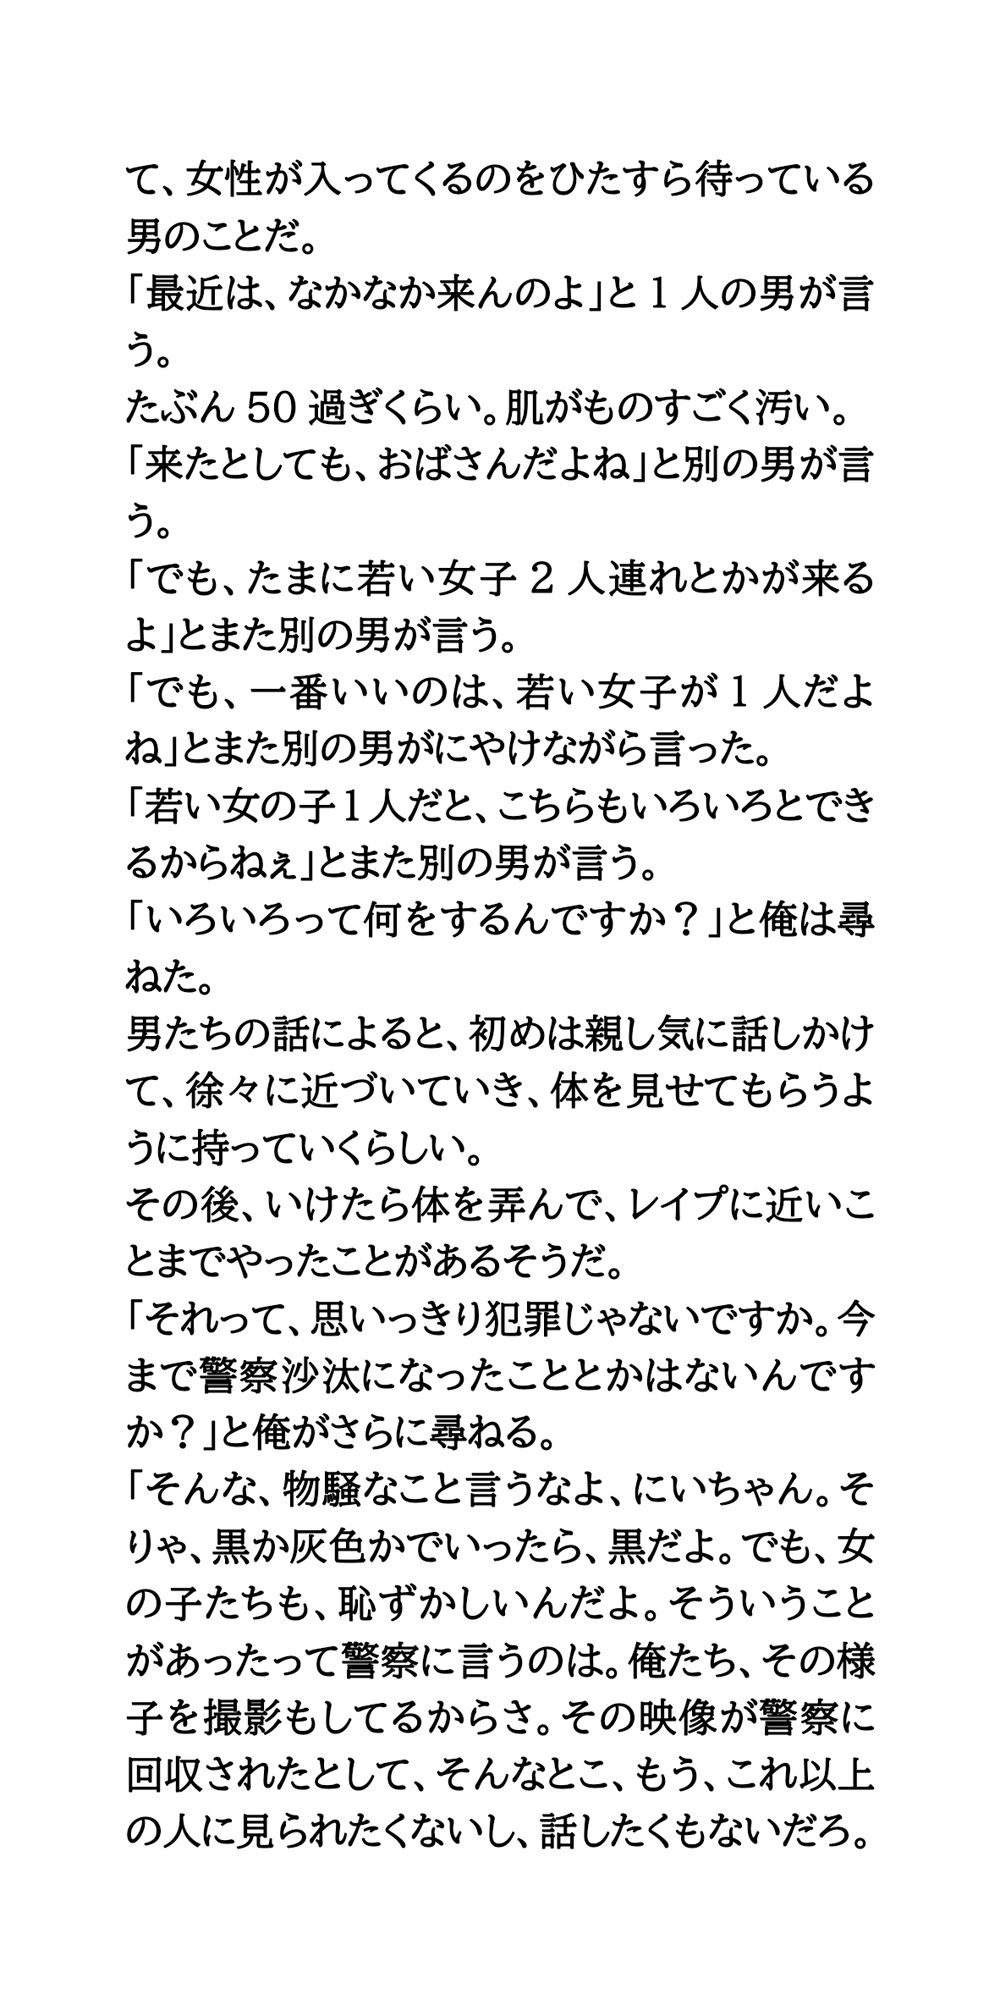 て、女性が入ってくるのをひたすら待っている
男のことだ。
「最近は、なかなか来んのよ」と1人の男が言
う。
たぶん50過ぎくらい。肌がものすごく汚い。
「来たとしても、おばさんだよね」と別の男が言
う。
「でも、たまに若い女子2人連れとかが来る
よ」とまた別の男が言う。
「でも、一番いいのは、若い女子が1人だよ
ね」とまた別の男がにやけながら言った。
「若い女の子1人だと、こちらもいろいろとでき
るからねぇ」とまた別の男が言う。
「いろいろって何をするんですか？」と俺は尋
ねた。
男たちの話によると、初めは親し気に話しかけ
て、徐々に近づいていき、体を見せてもらうよ
うに持っていくらしい。
その後、いけたら体を弄んで、レイプに近いこ
とまでやったことがあるそうだ。
「それって、思いっきり犯罪じゃないですか。今
まで警察沙汰になったこととかはないんです
か？」と俺がさらに尋ねる。
「そんな、物騒なこと言うなよ、にいちゃん。そ
りゃ、黒か灰色かでいったら、黒だよ。でも、女
の子たちも、恥ずかしいんだよ。そういうこと
があったって警察に言うのは。俺たち、その様
子を撮影もしてるからさ。その映像が警察に
回収されたとして、そんなとこ、もう、これ以上
の人に見られたくないし、話したくもないだろ。